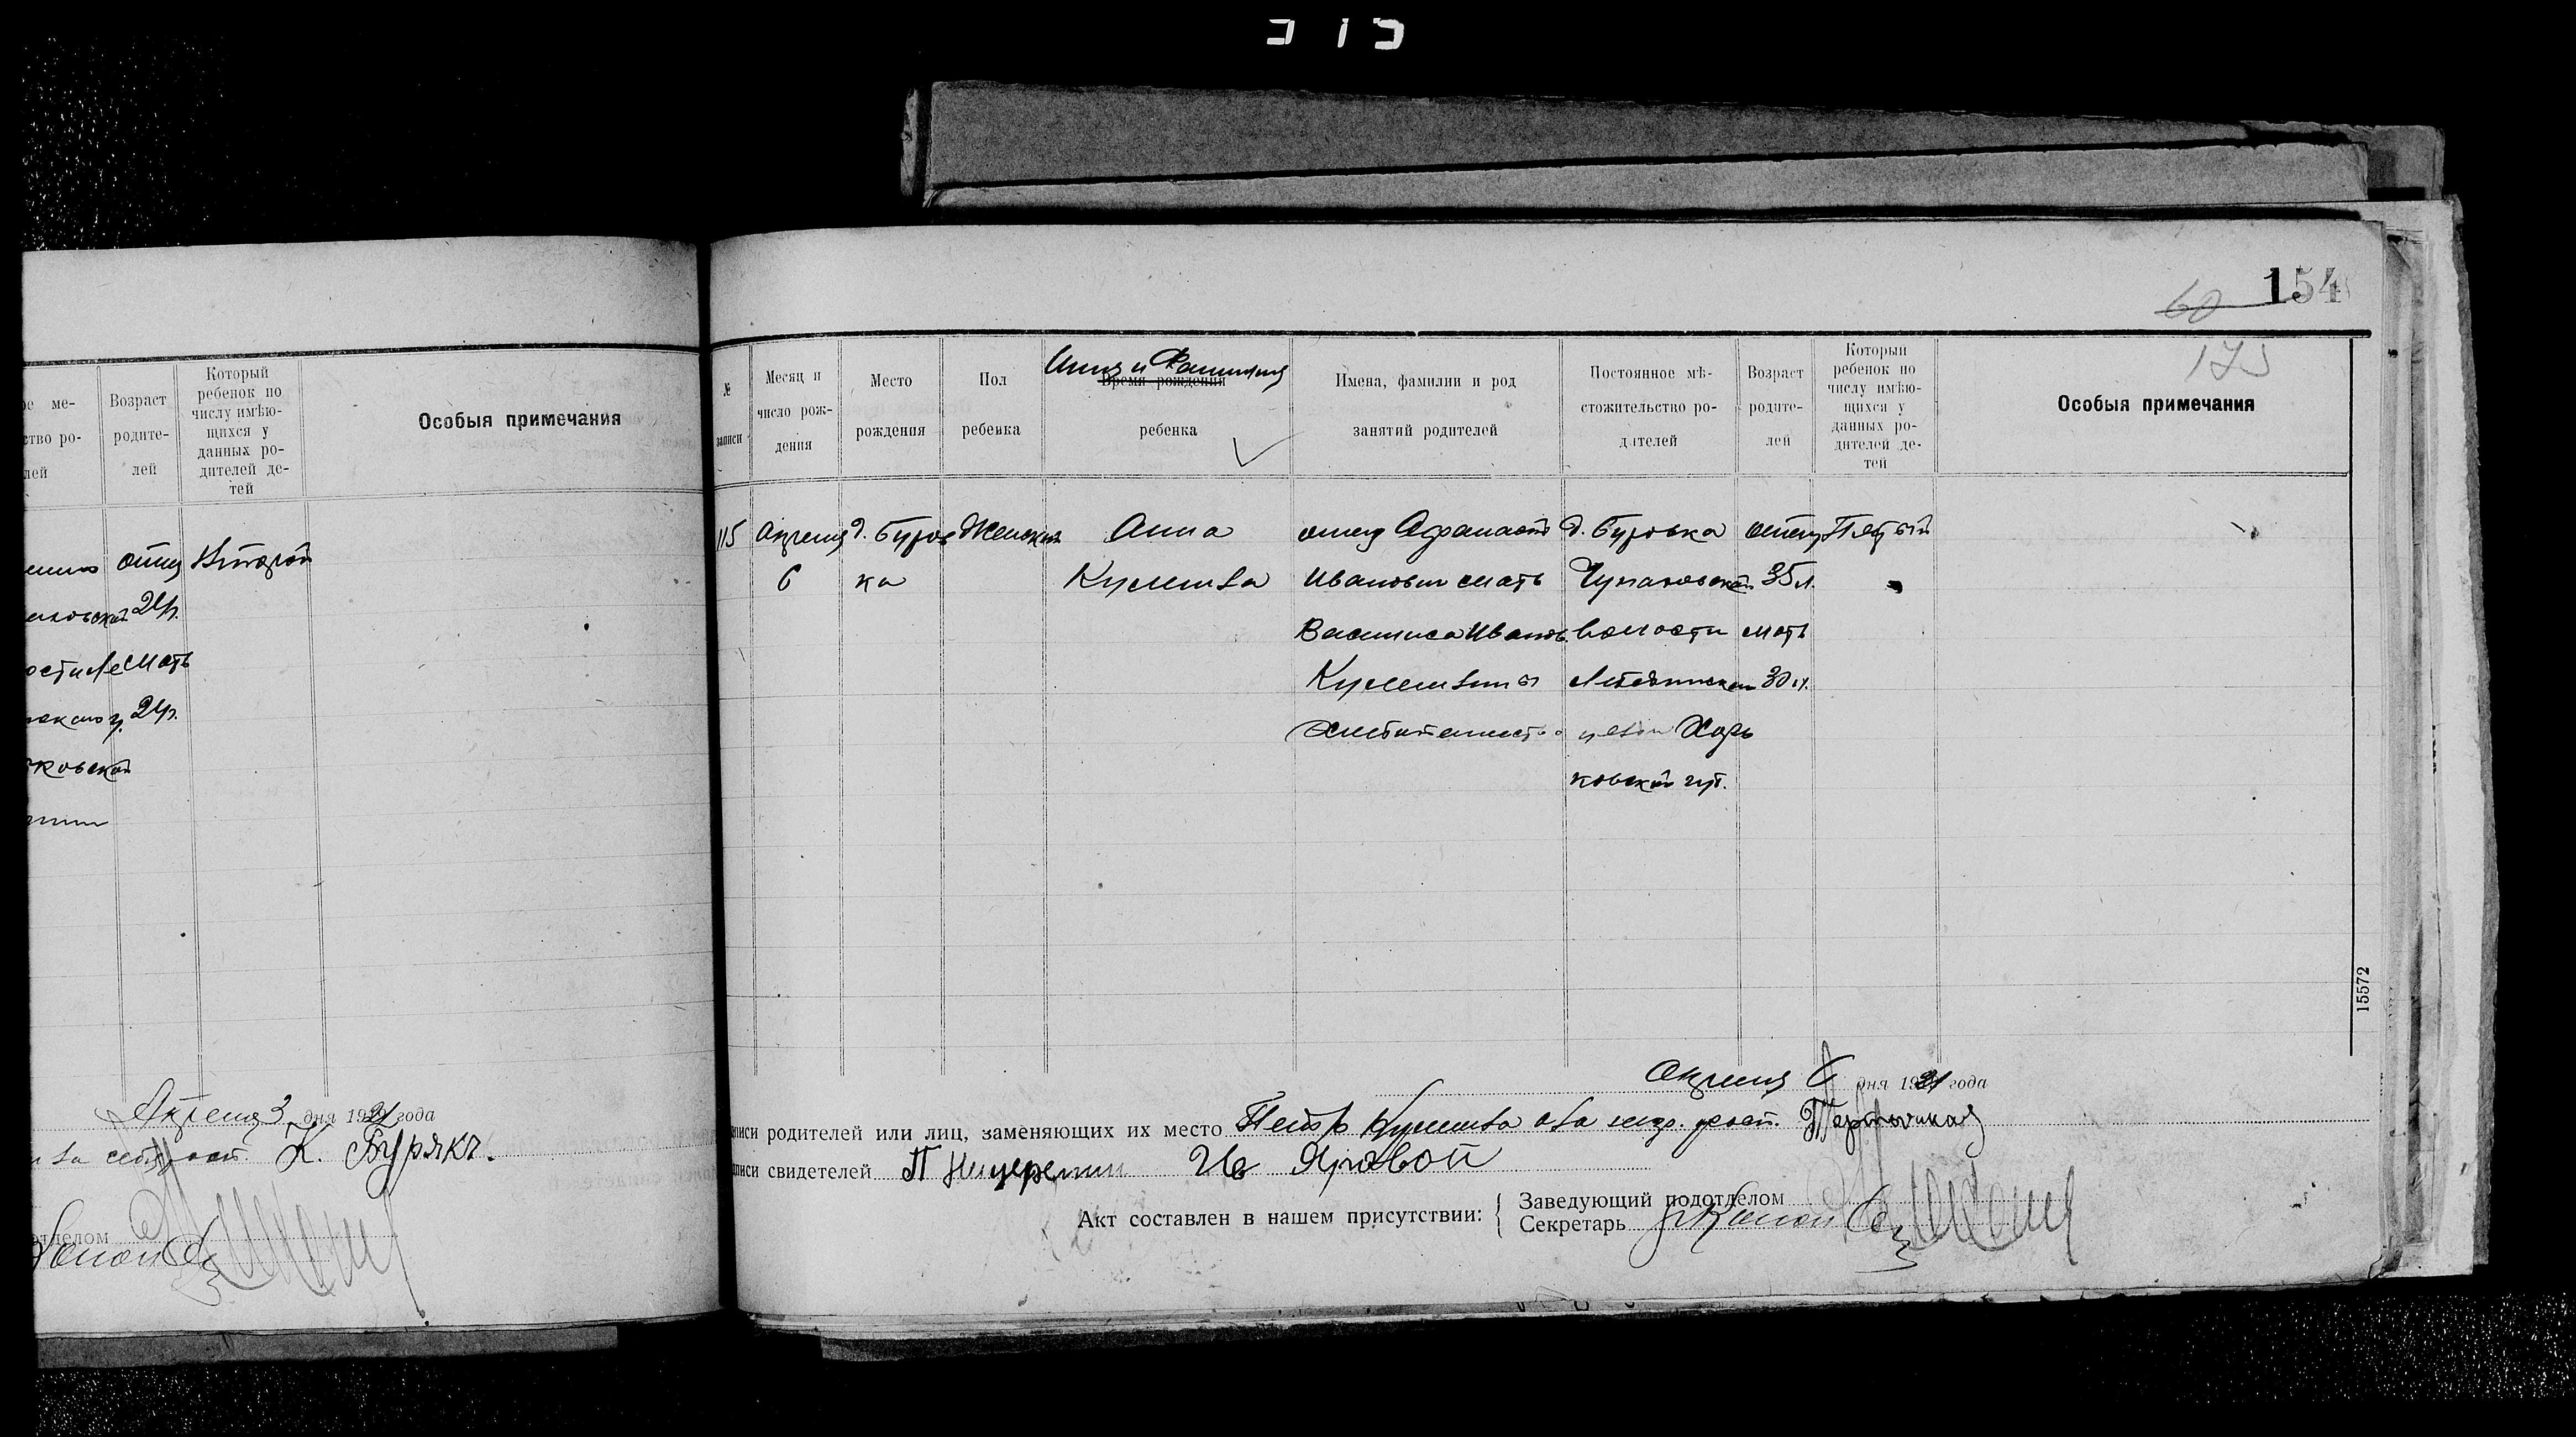 154
60
175
ое ме-
ство ро-
лей
Возраст
родите-
лей
Который
ребенок по
числу имѣю-
щихся у
данных ро-
дителей де-
тей
Особыя примечания
отец
24р.
мать
24р.
Второй
ковской
Апреля 3 дня 1921 года
К. Бурякъ.
отделом
№
записи
Месяц и
число рож-
дения
Место
рождения
Пол
ребенка
Имя и Фамилия
Время рождения
ребенка
Имена, фамилии и род
занятий родителей
Постоянное мѣ-
стожительство ро-
дителей
Возраст
родите-
лей
Который
ребенок по
числу имѣю-
щихся у
данных ро-
дителей де-
тей
Особыя примечания
115
Апреля
6
д. Буров
ка
Женский
Анна
Кулешова
отец Афанасий
Иванович мать
Василиса Иванов.
Кулешовы
д. Буровка
Чупаховской
волости
Лебединскаго
уезда Харь
ковской губ.
отец
35 л.
мать
30 л.
Пятый
15572
Апреля 6 дня 1921 года
писи родителей или лиц, заменяющих их место Петр Кулешов
писи свидетелей П Ив Яровой
Акт составлен в нашем присутствии:
Заведующий подотделом
Секретарь